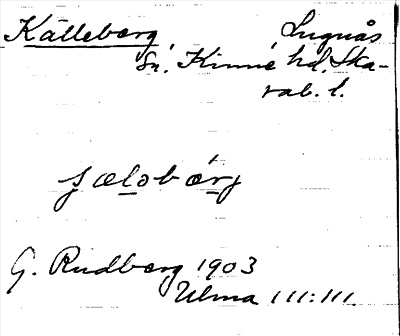 Källeberg Lugnås
Sn. Kinne hd. Ska-
rab. l.
G. Rudberg 1903
Ulma 111:111.